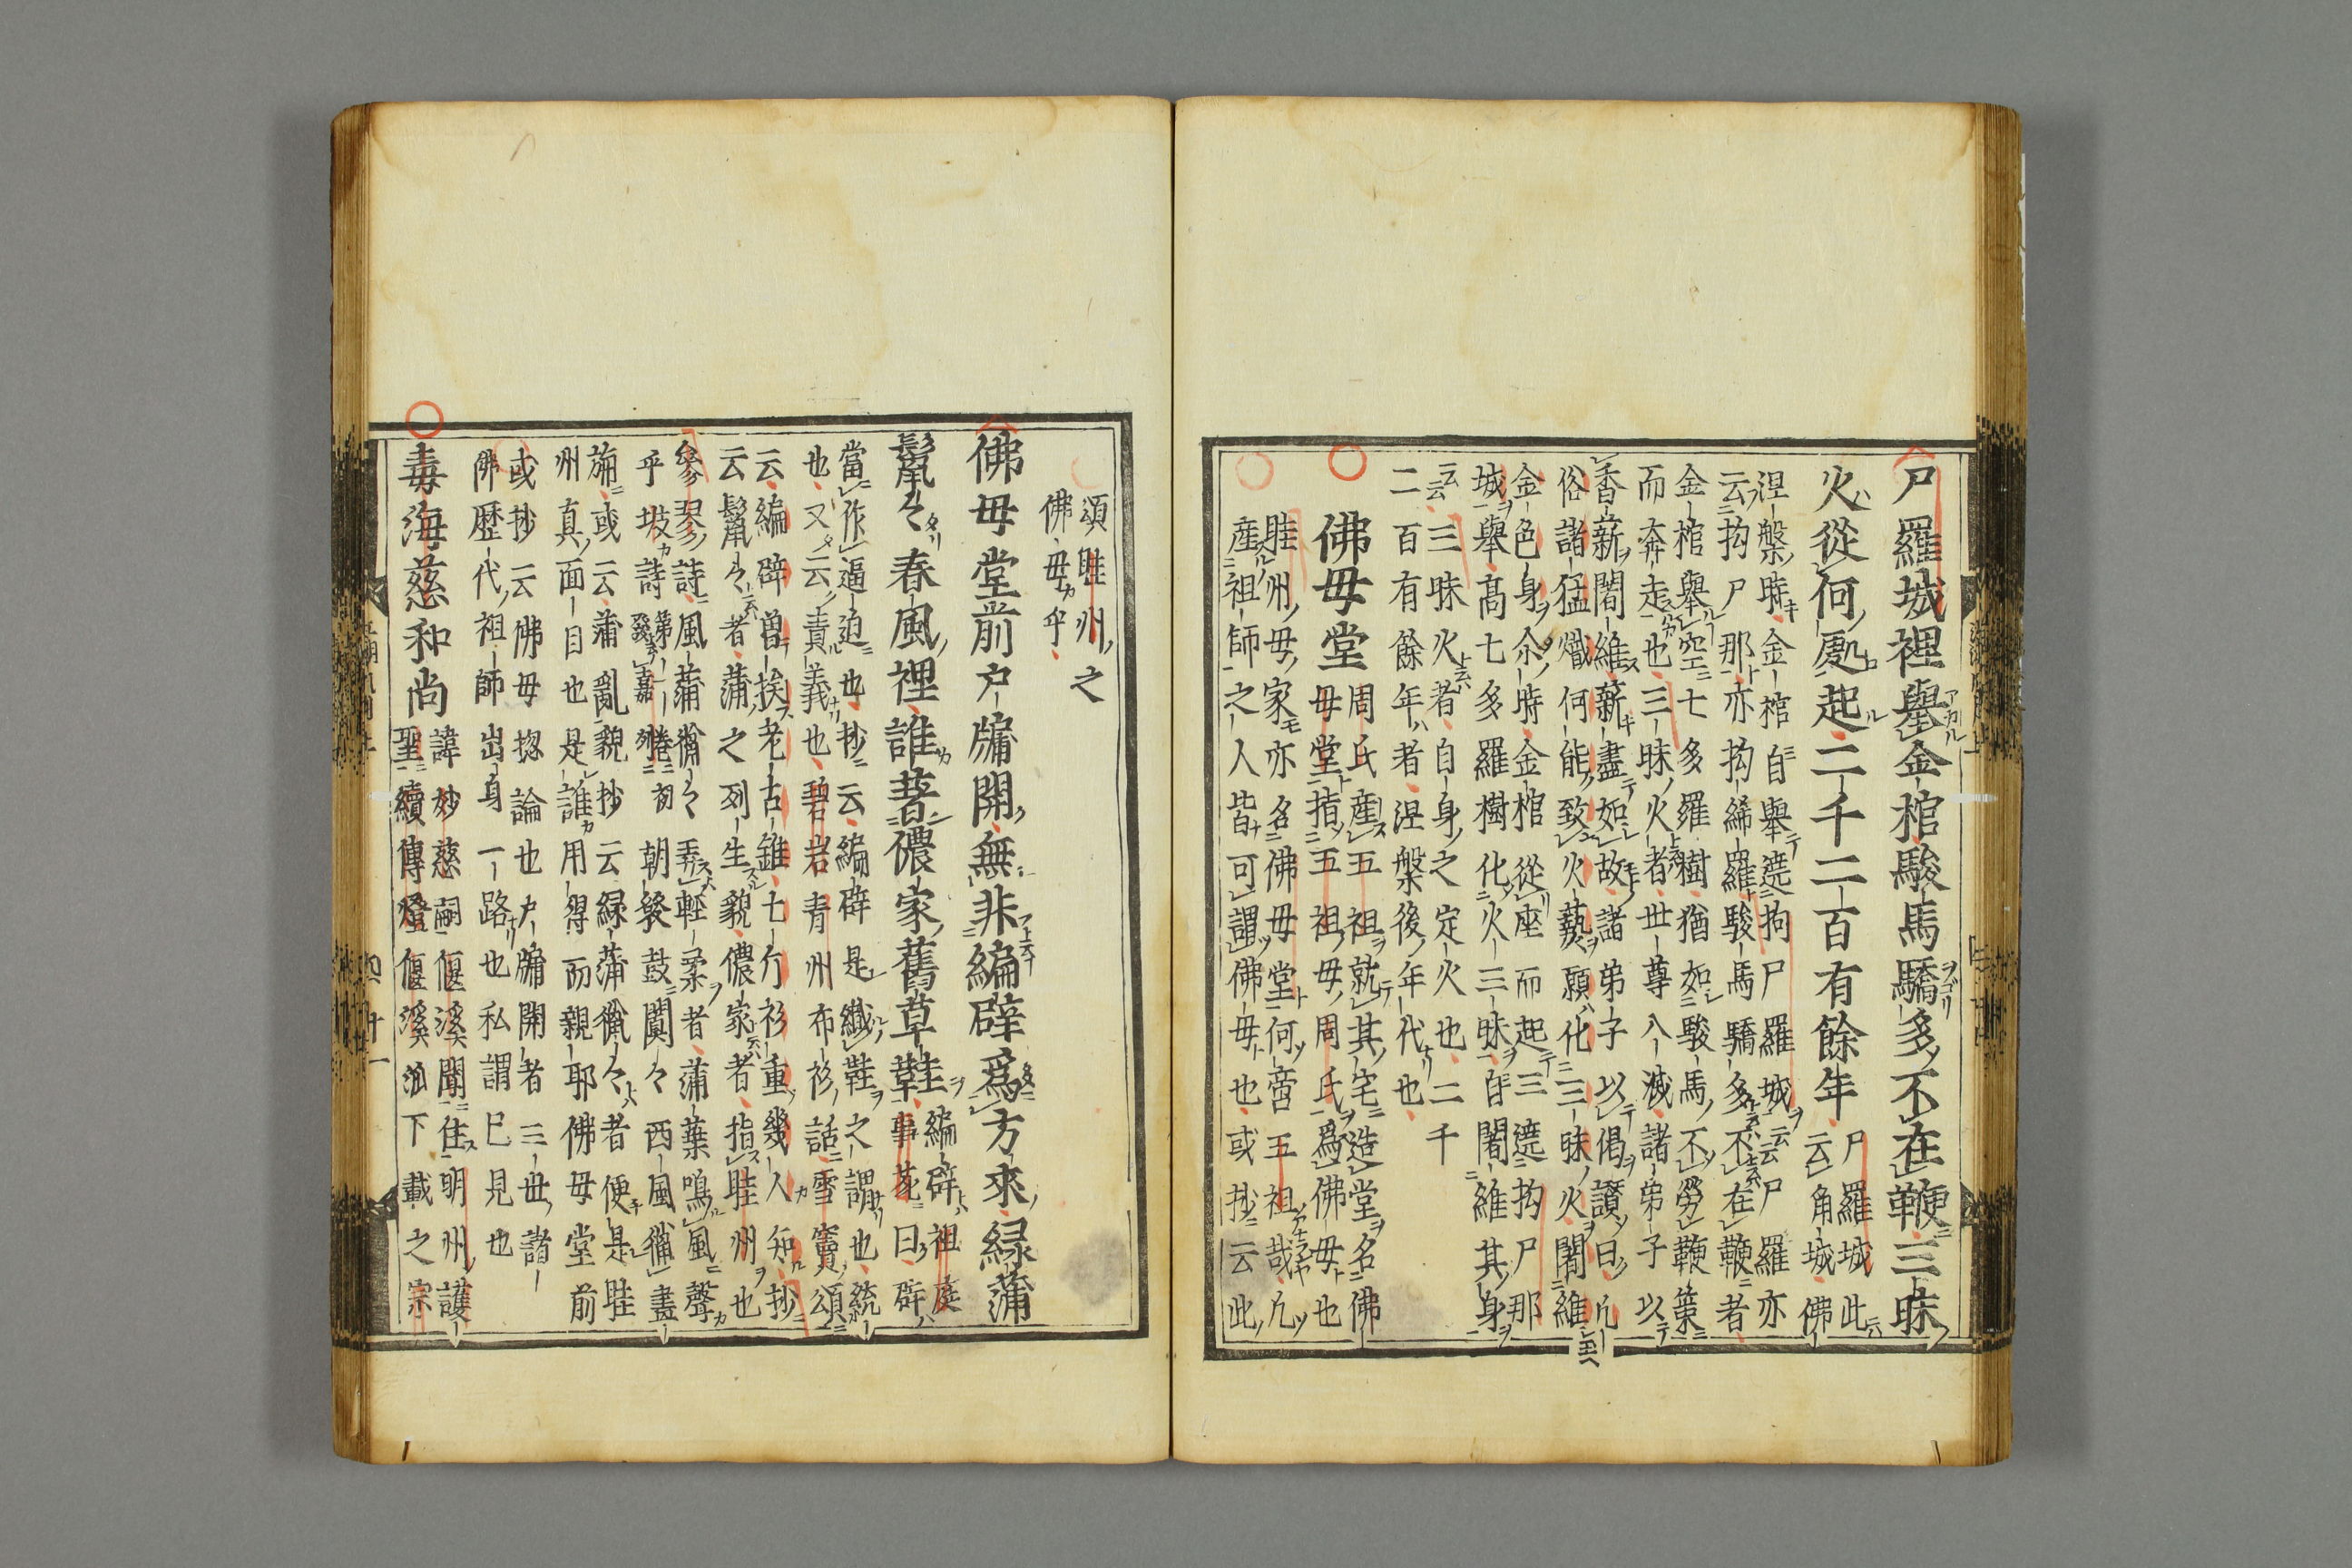 尸羅城裡擧金棺駿馬驕多不在鞭三昧
火從何處起二千二百有餘年
尸羅城此
云角城佛
涅槃時金棺自擧遶拘尸羅城云尸羅亦
云拘尸那亦拘絺羅駿馬驕多不在鞭者
金棺擧空七多羅樹猶如駿馬不勞鞭策
而奔走也三昧火者世尊入滅諸弟子以
香薪闍維薪盡如故諸弟子以偈讃曰凡
俗諸猛熾何能致火爇願化三昧火闍維
金色身尒時金棺從座而起三遶拘尸那
城擧高七多羅樹化火三昧自闍維其身
云云三昧火者自身之定火也二千
二百有餘年者涅槃後年代也
佛毋堂
周氏産五祖就其宅造堂名佛
毋堂指五祖毋周氏爲佛毋也
眭州毋家亦名佛毋堂何啻五祖哉凡
産祖師之人皆可謂佛毋也或抄云此
頌眭州之
佛毋乎
佛毋堂前户牖開無非編辟爲方來緑蒲
鬅々春風裡誰著儂家舊草鞋
編辟祖庭
事苑曰辟
當作逼迫也抄云編辟是織鞋之謂也統
也又云責義也碧岩青州布衫話雪竇頌
云編辟曽挨老古錐七斤衫重幾人知抄
云鬅々者蒲之列生貌儂家者指眭州也
參寥詩風蒲獵々弄輕柔者蒲葉鳴風聲
乎坡詩
發嘉州初朝發鼓闐々西風獵盡
旃或云蒲亂貌抄云緑蒲獵々者便是眭
州真面目也是誰用得而親耶佛毋堂前
或抄云佛毋惣論也户牖開者三世諸
佛歴代祖師出身一路也私謂巳見也
毒海慈和尚
諱妙慈嗣偃溪聞住明州護
聖續傳燈偃溪派下載之宗